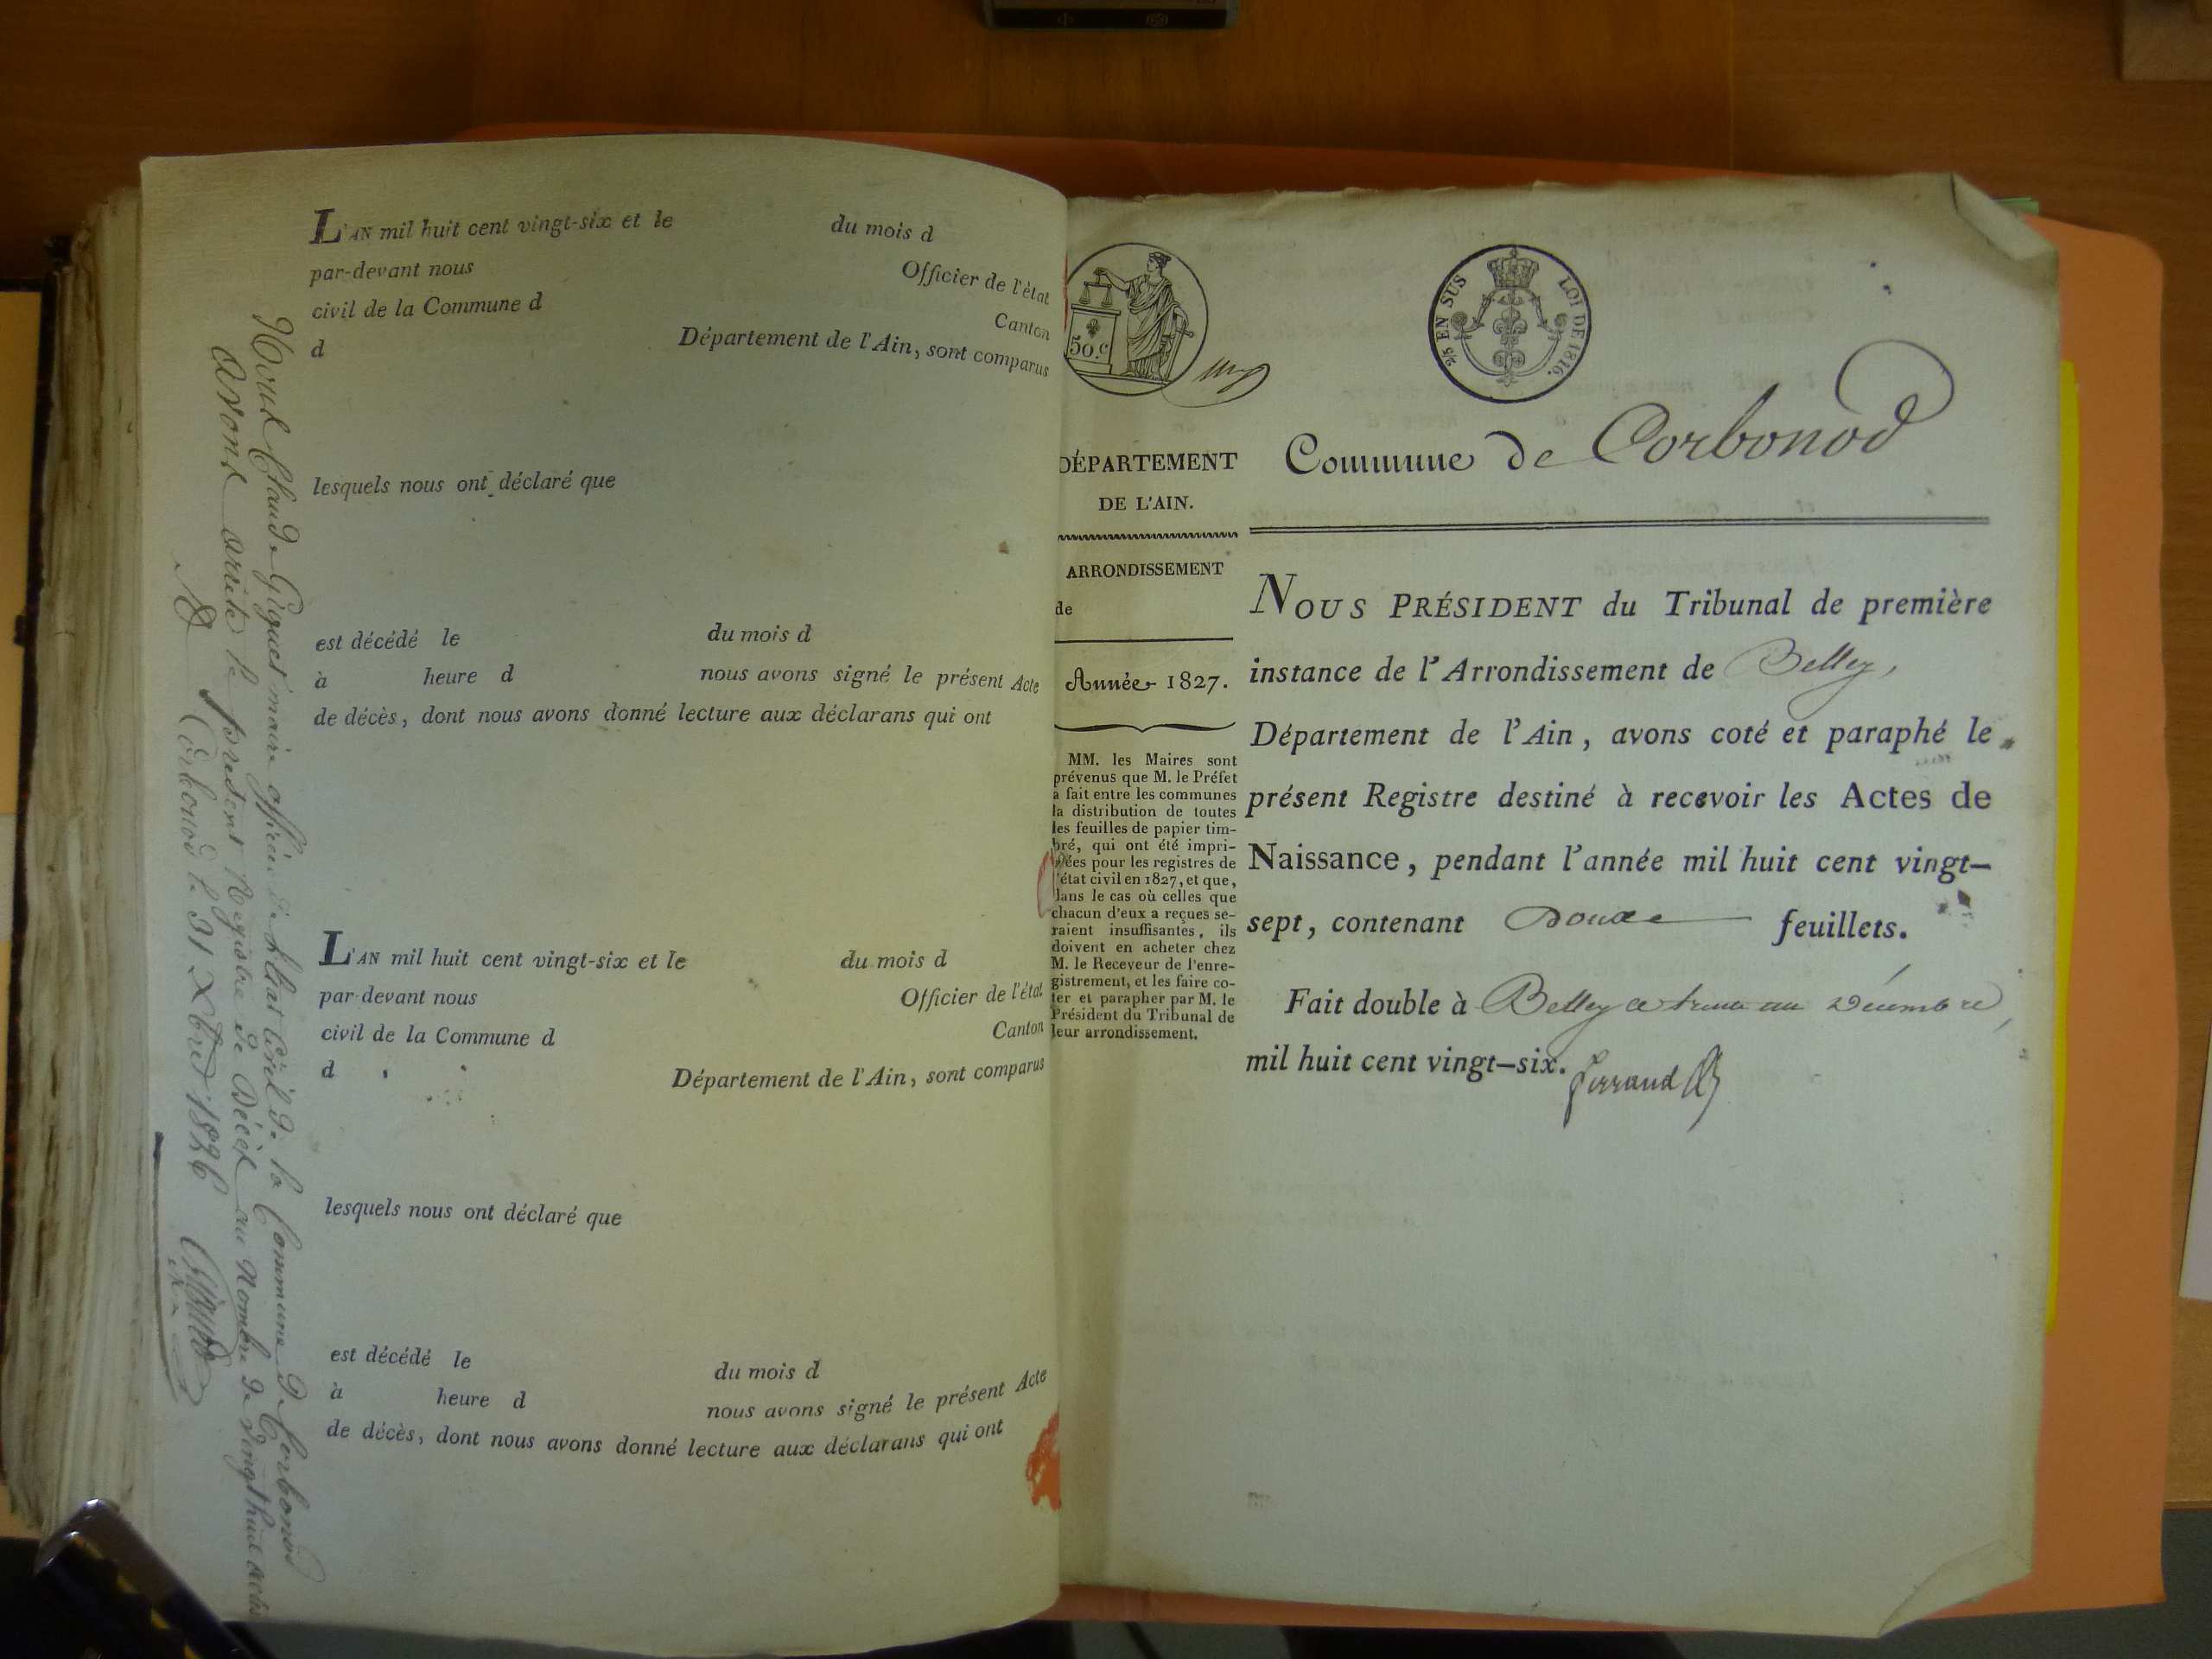 L'AN mil huit cent vingt-six et le du mois d
par-devant nous Officier de l'état
civil de la Commune d Canton
d Département de l'Ain, sont comparus
lesquels nous ont déclaré que
est décédé le du mois d
à heure d nous avons signé le présent Acte
de décès, dont nous avons donné lecture aux déclarans qui ont
L'AN mil huit cent vingt-six et le du mois d
par-devant nous Officier de l'état
civil de la Commune d Canton
d Département de l'Ain, sont comparus
lesquels nous ont déclaré que
est décédé le du mois d
à heure d nous avons signé le présent Acte
de décès, dont nous avons donné lecture aux déclarans qui ont
Nous Claude maire officier de l'état civil de la Commune de Corbonod
avons arrêté le present Registre de Décès au Nombre de vingt huit actes
A Corbonod le 31 Xbre 1826
50.c
2/5 EN SUS LOI DE 1816.
DÉPARTEMENT
DE L'AIN.
ARRONDISSEMENT
de
Année 1827.
MM. les Maires sont
prévenus que M. le Préfet
a fait entre les communes
la distribution de toutes
les feuilles de papier tim-
bré, qui ont été impri-
mées pour les registres de
l'état civil en 1827, et que,
dans le cas où celles que
chacun d'eux a reçues se-
raient insuffisantes, ils
doivent en acheter chez
M. le Receveur de l'enre-
gistrement, et les faire co-
ter et parapher par M. le
Président du Tribunal de
leur arrondissement.
Commune de Corbonod
NOUS PRÉSIDENT du Tribunal de première
instance de l'Arrondissement de Belley,
Département de l'Ain, avons coté et paraphé le
présent Registre destiné à recevoir les Actes de
Naissance, pendant l'année mil huit cent vingt-
sept, contenant Douze feuillets.
Fait double à Belley ce trente un Décembre,
mil huit cent vingt-six.